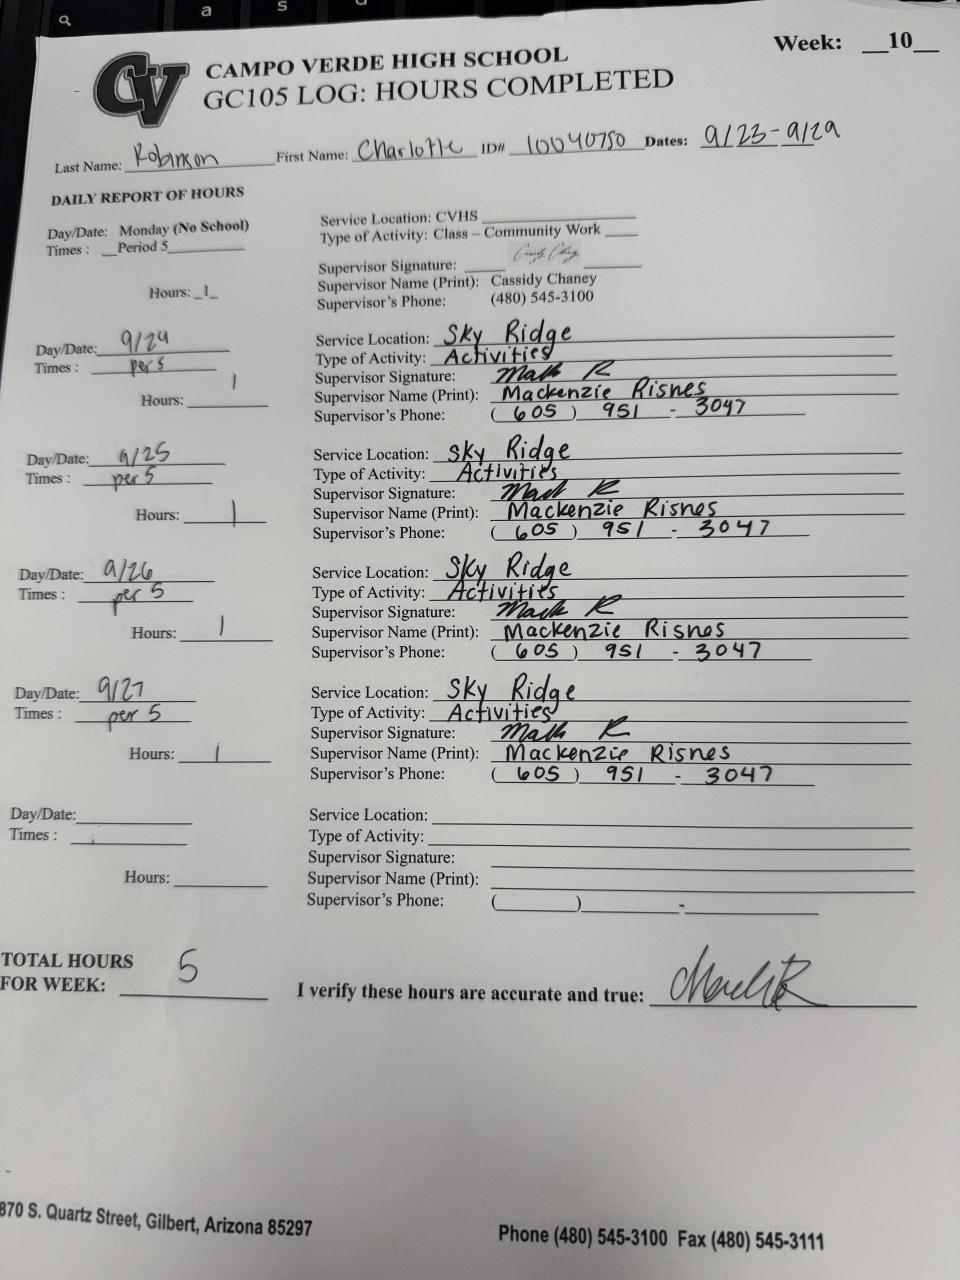 a s
Week: __10__
CV CAMPO VERDE HIGH SCHOOL
GC105 LOG: HOURS COMPLETED
Last Name: Robinson First Name: Charlotte ID# 10040750 Dates: 9/23-9/29
DAILY REPORT OF HOURS
Day/Date: Monday (No School)
Times : __Period 5
Hours:_1_
Service Location: CVHS
Type of Activity: Class – Community Work
Supervisor Signature:
Supervisor Name (Print): Cassidy Chaney
Supervisor's Phone: (480) 545-3100
Day/Date: 9/24
Times : per 5
Hours: 1
Service Location: Sky Ridge
Type of Activity: Activities
Supervisor Signature:
Supervisor Name (Print): Mackenzie Risnes
Supervisor's Phone: (605) 951 - 3047
Day/Date: 9/25
Times : per 5
Hours: 1
Service Location: Sky Ridge
Type of Activity: Activities
Supervisor Signature:
Supervisor Name (Print): Mackenzie Risnes
Supervisor's Phone: (605) 951 - 3047
Day/Date: 9/26
Times : per 5
Hours: 1
Service Location: Sky Ridge
Type of Activity: Activities
Supervisor Signature:
Supervisor Name (Print): Mackenzie Risnes
Supervisor's Phone: (605) 951 - 3047
Day/Date: 9/27
Times : per 5
Hours: 1
Service Location: Sky Ridge
Type of Activity: Activities
Supervisor Signature:
Supervisor Name (Print): Mackenzie Risnes
Supervisor's Phone: (605) 951 - 3047
Day/Date:
Times :
Hours:
Service Location:
Type of Activity:
Supervisor Signature:
Supervisor Name (Print):
Supervisor's Phone: ( ) -
TOTAL HOURS
FOR WEEK: 5
I verify these hours are accurate and true:
870 S. Quartz Street, Gilbert, Arizona 85297
Phone (480) 545-3100 Fax (480) 545-3111